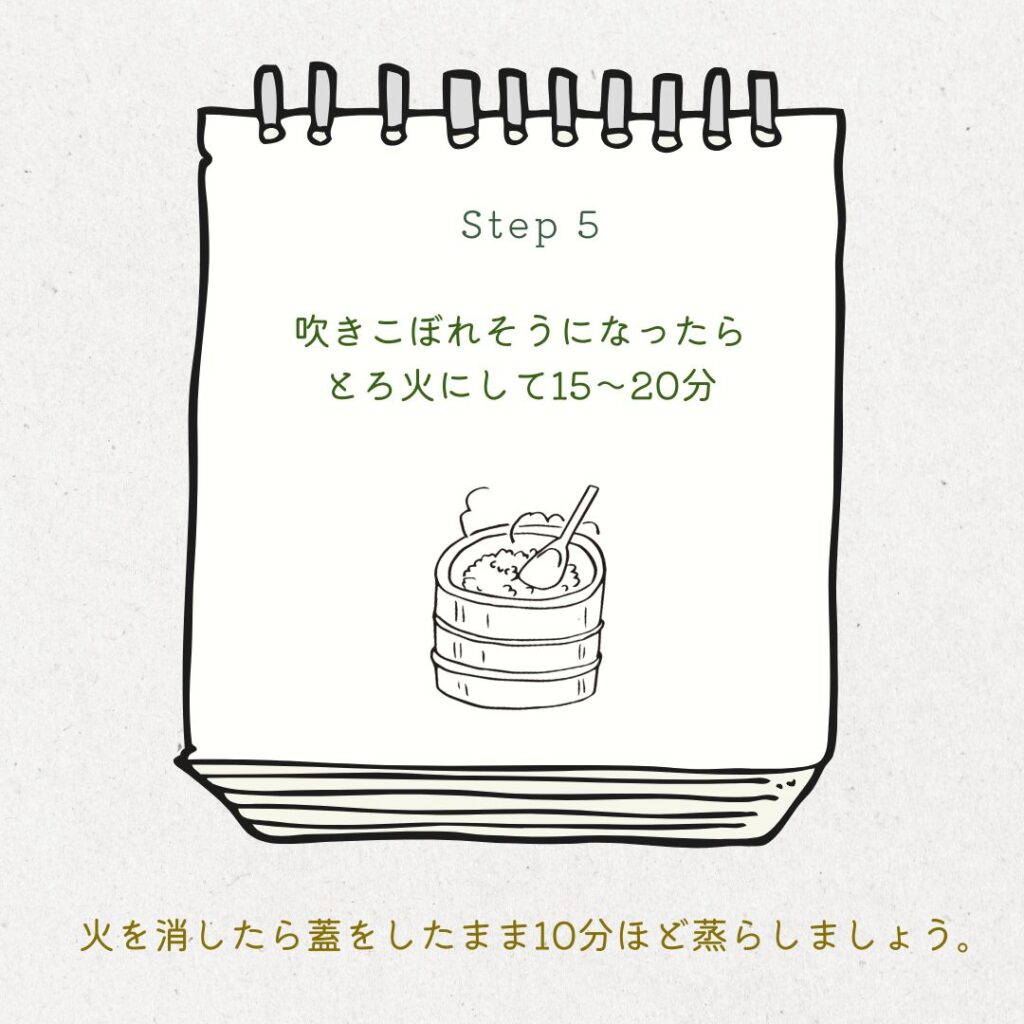 Step 5
吹きこぼれそうになったら
とろ火にして15〜20分
火を消したら蓋をしたまま10分ほど蒸らしましょう。